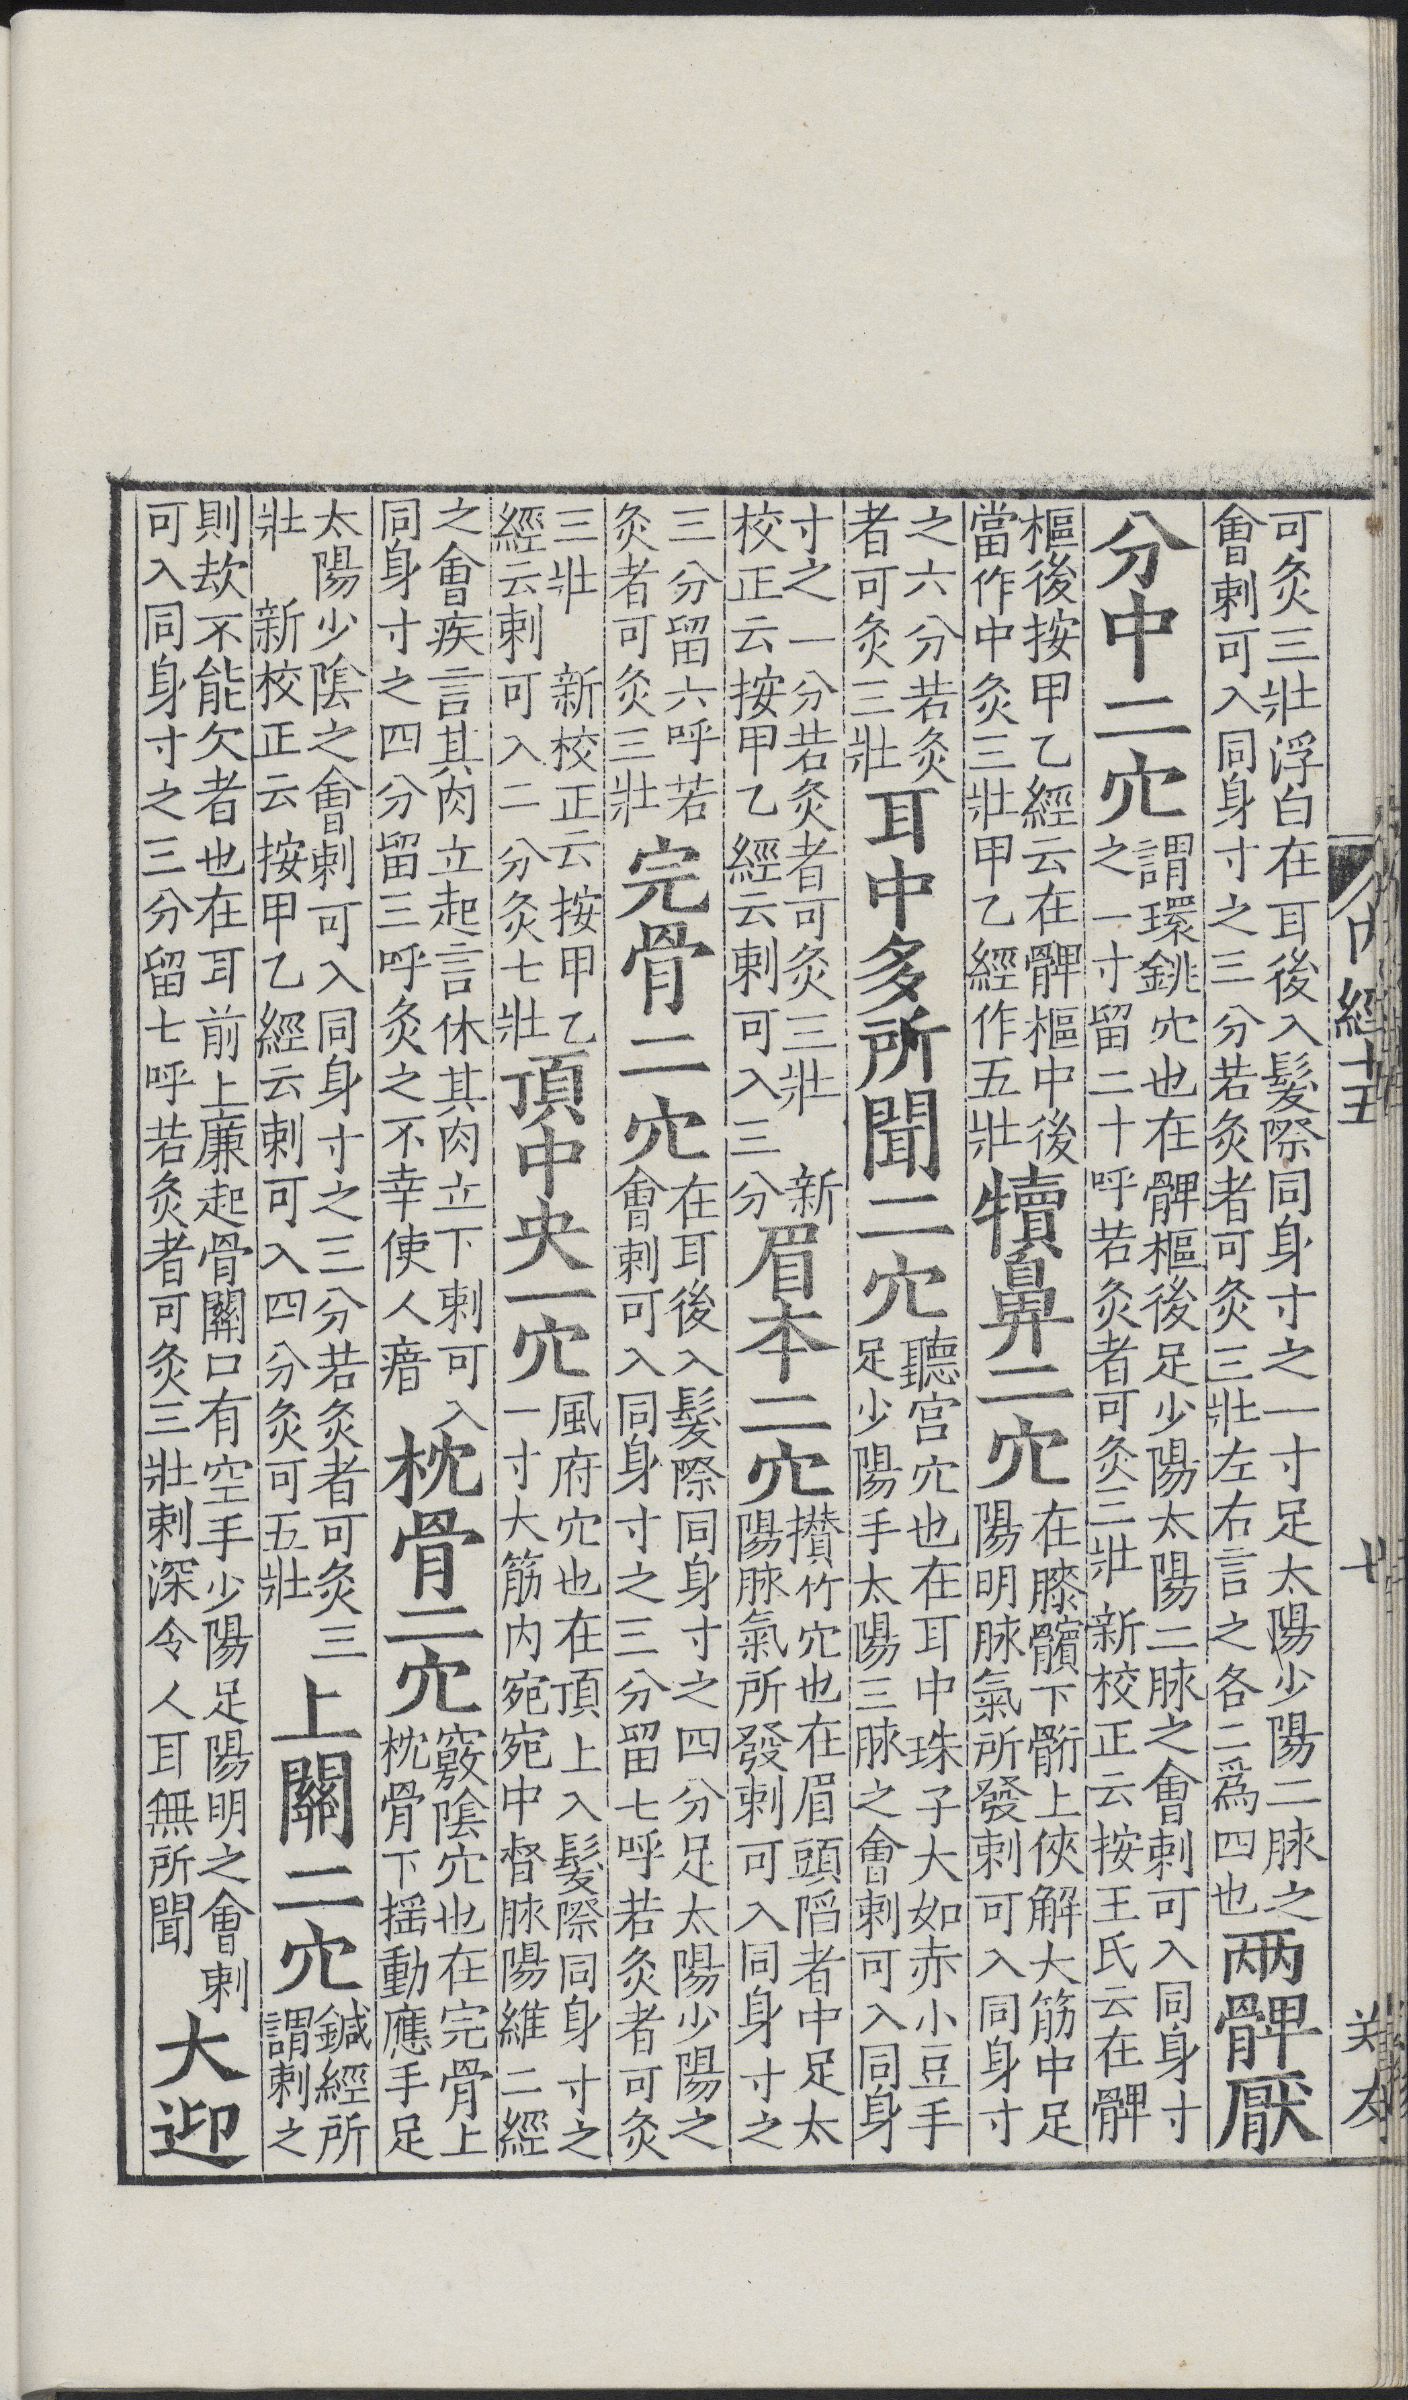 可灸三壯浮白在耳後入髮際同身寸之一寸足太陽少陽二脉之
會刺可入同身寸之三分若灸者可灸三壯左右言之各二爲四也
兩髀厭
分中二穴
謂環銚穴也在髀樞後足少陽太陽二脉之會刺可入同身寸
之一寸留二十呼若灸者可灸三壯 新校正云按王氏云在髀
樞後按甲乙經云在髀樞中後
當作中灸三壯甲乙經作五壯
犢鼻二穴
在膝髕下䯒上俠解大筋中足
陽明脉氣所發刺可入同身寸
之六分若灸
者可灸三壯
耳中多所聞二穴
聽宫穴也在耳中珠子大如赤小豆手
足少陽手太陽三脉之會刺可入同身
寸之一分若灸者可灸三壯 新
校正云按甲乙經云刺可入三分
眉本二穴
攅竹穴也在眉頭䧟者中足太
陽脉氣所發刺可入同身寸之
三分留六呼若
灸者可灸三壯
完骨二穴
在耳後入髮際同身寸之四分足太陽少陽之
會刺可入同身寸之三分留七呼若灸者可灸
三壯 新校正云按甲乙
經云刺可入二分灸七壯
頂中央一穴
風府穴也在頂上入髮際同身寸之
一寸大筋内宛宛中督脉陽維二經
之會疾言其肉立起言休其肉立下刺可入
同身寸之四分留三呼灸之不幸使人瘖
枕骨二穴
竅陰穴也在完骨上
枕骨下揺動應手足
太陽少陰之會刺可入同身寸之三分若灸者可灸三
壯 新校正云按甲乙經云刺可入四分灸可五壯
上關二穴
鍼經所
謂刺之
則㰦不能欠者也在耳前上廉起骨關口有空手少陽足陽明之會刺
可入同身寸之三分留七呼若灸者可灸三壯刺深令人耳無所聞
大迎
内經十五